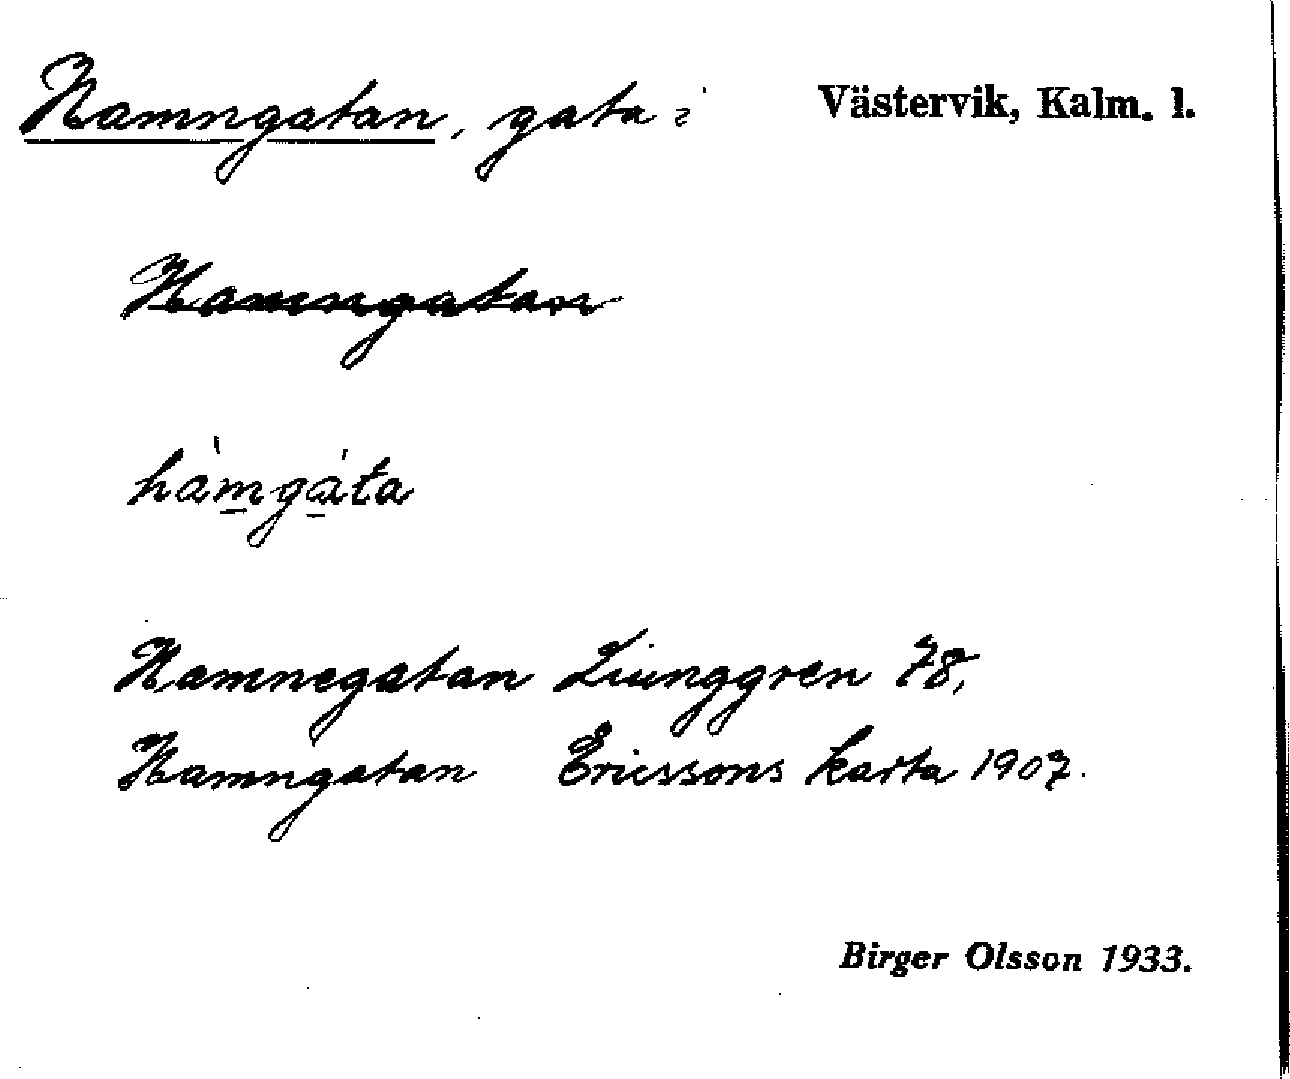 Hamngatan, gata i Västervik, Kalm. l.
Hamngatan
hàmgáta
Hamnegatan Liunggren 78,
Hamngatan Ericssons karta 1907.
Birger Olsson 1933.